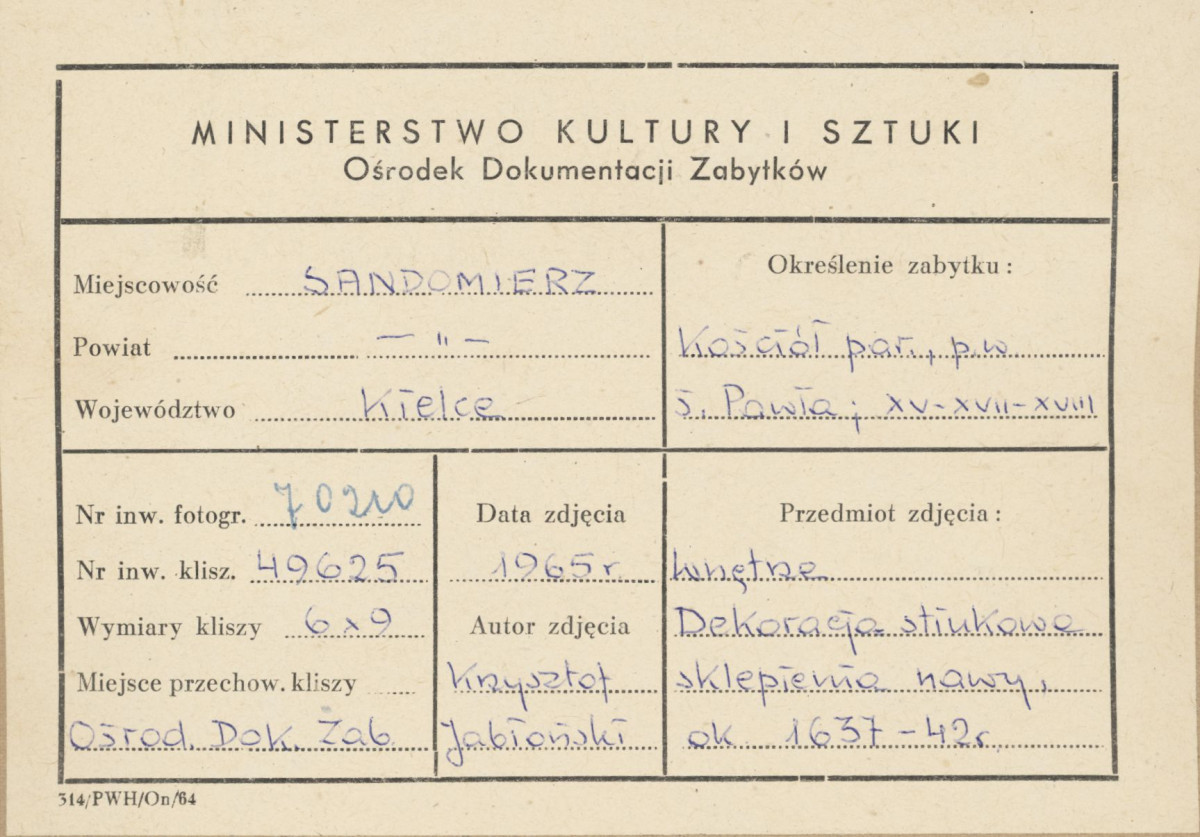 MINISTERSTWO KULTURY I SZTUKI
Ośrodek Dokumentacji Zabytków
Miejscowość SANDOMIERZ
Powiat — " —
Województwo Kielce
Określenie zabytku:
Kościół par., p.w
ś. Pawła; XV-XVII-XVIII
Nr inw. fotogr. 70210
Nr inw. klisz. 49625
Wymiary kliszy 6x9
Miejsce przechow. kliszy
Ośrod. Dok. Zab.
Data zdjęcia
1965 r.
Autor zdjęcia
Krzysztof
Jabłoński
Przedmiot zdjęcia:
Wnętrze
Dekoracja stiukowa
sklepienia nawy,
ok. 1637-42 r.
314/PWH/On/64